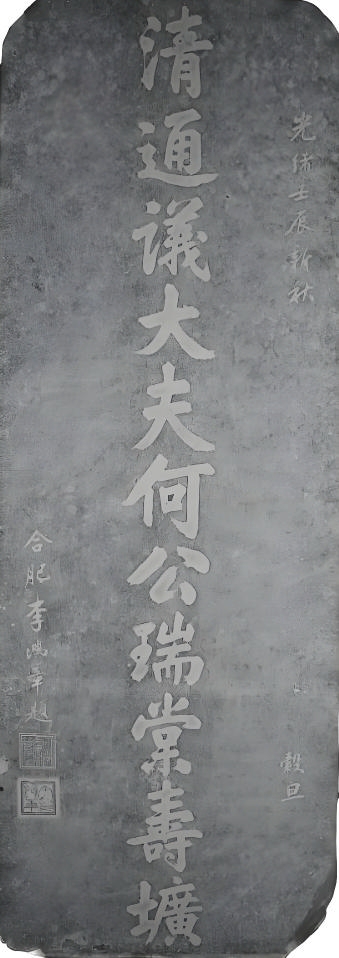 光緒壬辰新秋
穀旦
清通議大夫何公瑞棠壽壙
合肥李鴻章題